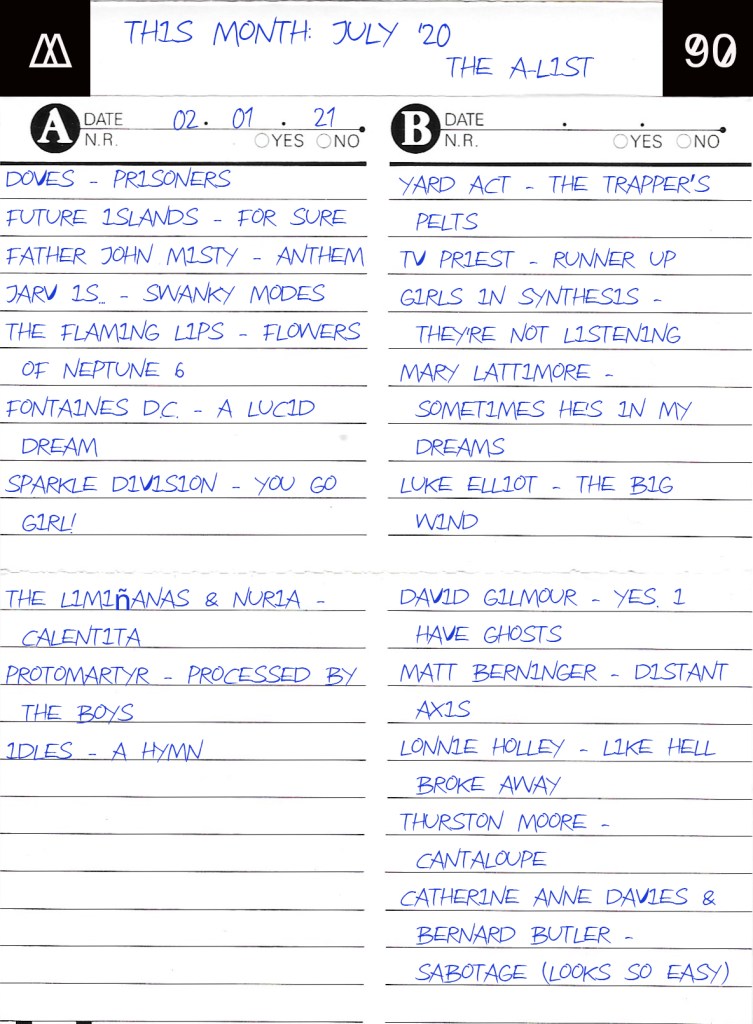 THIS MONTH: JULY '20
THE A-LIST
90
A DATE 02. 01. 21
N.R. YES NO
DOVES - PRISONERS
FUTURE ISLANDS - FOR SURE
FATHER JOHN MISTY - ANTHEM
JARV IS... - SWANKY MODES
THE FLAMING LIPS - FLOWERS
OF NEPTUNE 6
FONTAINES D.C. - A LUCID
DREAM
SPARKLE DIVISION - YOU GO
GIRL!
THE LIMIñANAS & NURIA -
CALENTITA
PROTOMARTYR - PROCESSED BY
THE BOYS
IDLES - A HYMN
B DATE . .
N.R. YES NO
YARD ACT - THE TRAPPER'S
PELTS
TV PRIEST - RUNNER UP
GIRLS IN SYNTHESIS -
THEY'RE NOT LISTENING
MARY LATTIMORE -
SOMETIMES HE'S IN MY
DREAMS
LUKE ELLIOT - THE BIG
WIND
DAVID GILMOUR - YES, I
HAVE GHOSTS
MATT BERNINGER - DISTANT
AXIS
LONNIE HOLLEY - LIKE HELL
BROKE AWAY
THURSTON MOORE -
CANTALOUPE
CATHERINE ANNE DAVIES &
BERNARD BUTLER -
SABOTAGE (LOOKS SO EASY)